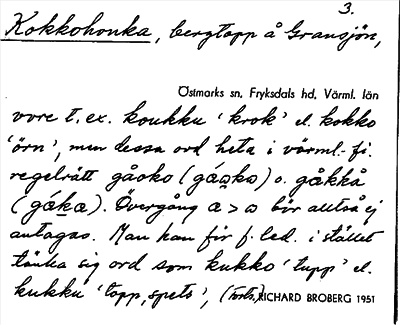 3.
Kokkohonka, bergtopp å Gransjön,
Östmarks sn. Fryksdals hd. Värml. län
vore t.ex. koukku 'krok' el. kokko
'örn', men dessa ord heta i värml.-fi.
regelrätt gåoko (gáo̬ko) o. gåkkå
(gáka). Övergång a > o bör alltså ej
antagas. Man kan för f. led. i stället
tänka sig ord som kukko 'tupp' el.
kukku 'topp, spets', (forts.)
RICHARD BROBERG 1951